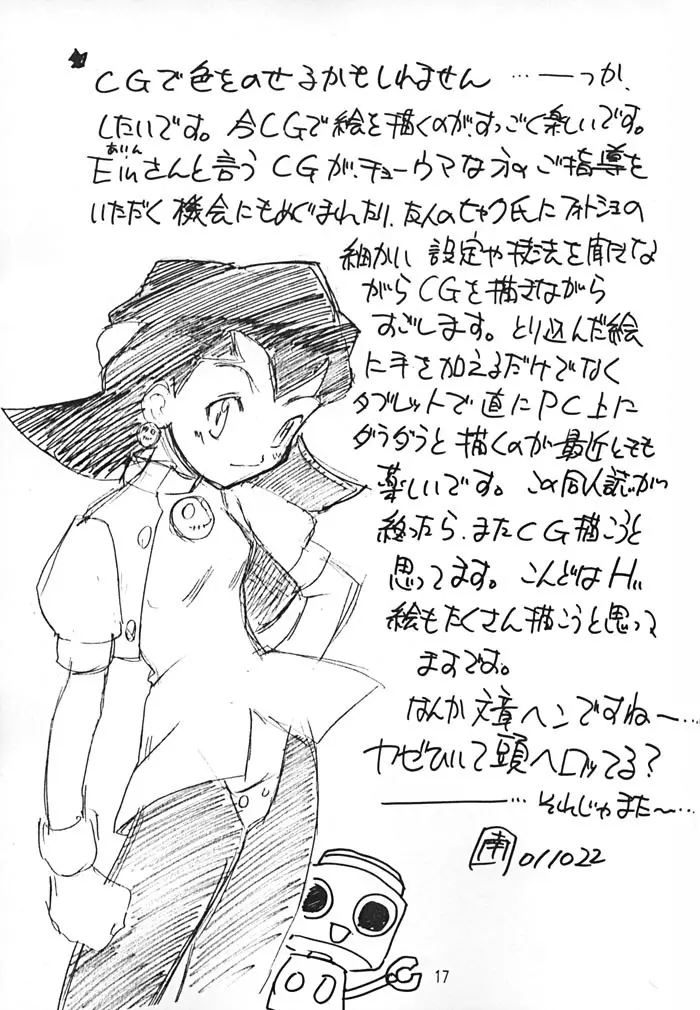 CGで色をのせるかもしれません …―っか、
したいです。今CGで絵を描くのが、すっごく楽しいです。
あいん
Einさんと言う CGが、チョーウマな方の ご指導を
いただく 機会にもめぐまれたり、友人のセャク氏にフォトショの
細かい 設定や技法を聞きな
がらCGを描きながら
すごします。とり込んだ絵
に手を加えるだけでなく
タブレットで直にPC上に
ダラダラと描くのが最近とても
楽しいです。この同人誌が
終ったら、またCG描こうと
思ってます。こんどはH
絵もたくさん描こうと思って
ますです。
なんか文章ヘンですねー…
カゼひいて頭ヘロってる?
―――… それじゃまた〜…
南 011022
17